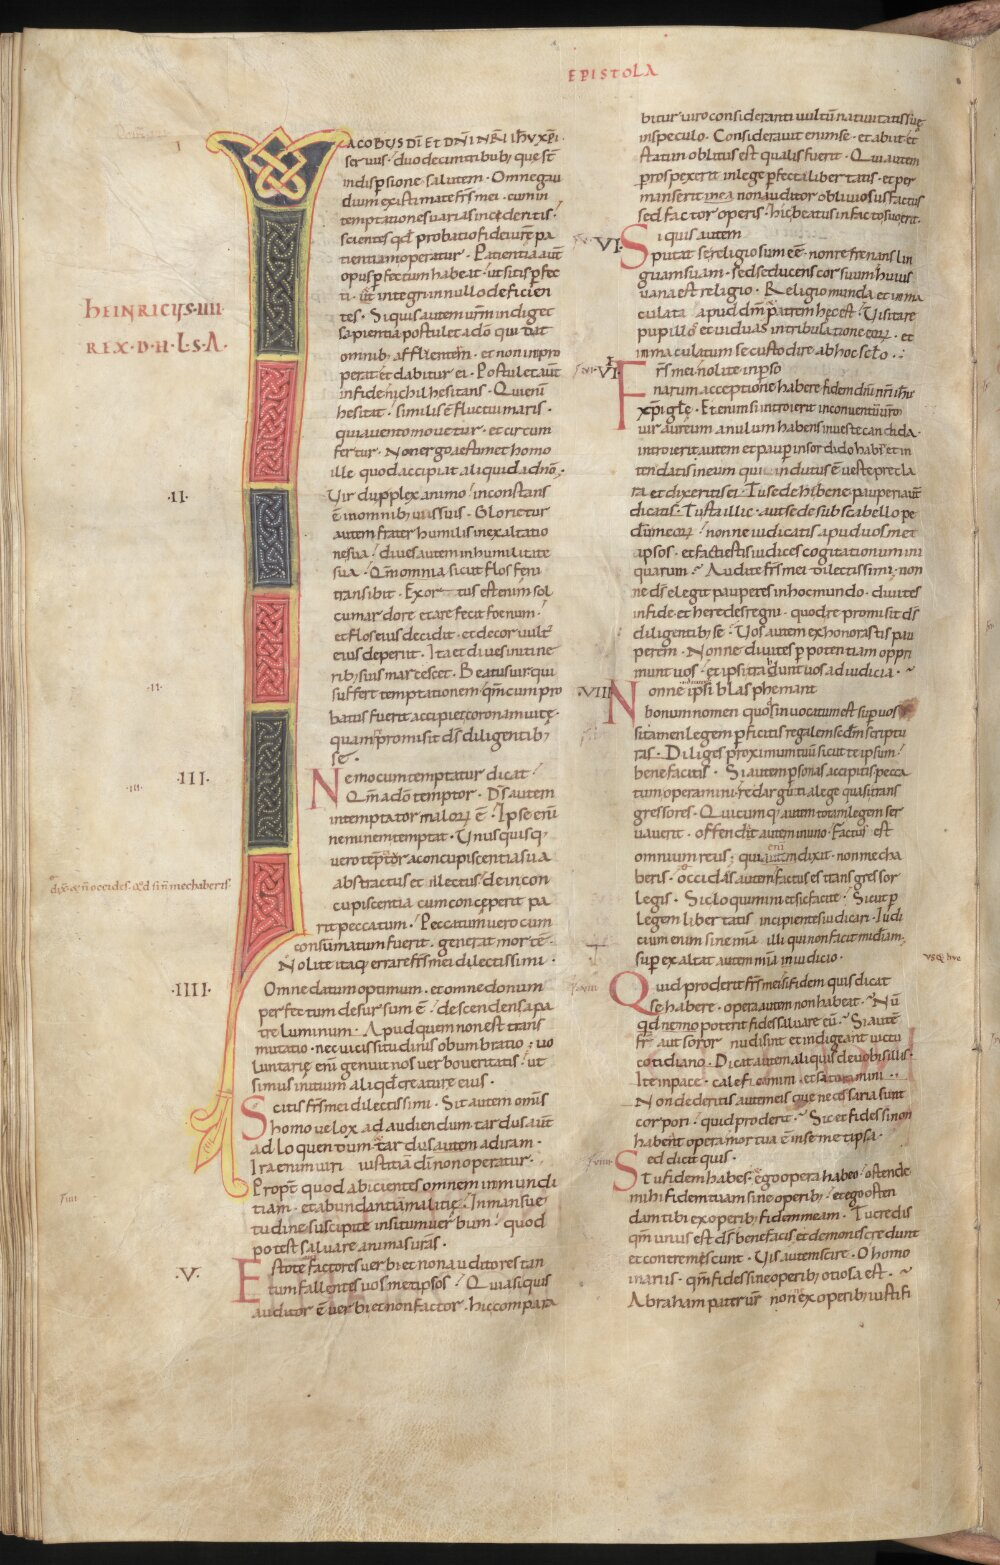 EPISTOLA
IACOBUS DI ET DNI NRI IHU XPI·
seruus· duodecim tribub; que st
in dispersione salutem· Omne gau
dium existimate frs mei· cum in
temptationes uarias incideritis·
scientes qd probatio fidei ure pa
tientiam operatur· Patientia aut
opus pfectum habeat· ut sitis pfec
ti· & integri in nullo deficien
tes· Si quis autem urm indiget
sapientia postulet a do qui dat
omnib; affluenter· et non inpro
perat et dabitur ei· Postulet aut
in fide nichil hesitans· Qui enim
hesitat· similis e fluctui maris·
qui a uento mouetur· et circum
fertur· Non ergo aestimet homo
ille quod accipiat aliquid a dno·
HEINRICUS·IIII·
REX·D·H·L·S·A·
·II·
Vir dupplex animo· inconstans
e in omnib; uiis suis· Glorietur
autem frater humilis in exaltatio
ne sua· diues autem in humilitate
sua· Qm omnia sicut flos feni
transibit· Exortus est enim sol
cum ardore et arefecit foenum·
et flos eius decidit· et decor uult
eius deperiit· Ita et diues in itine
rib; suis marcescet· Beatus uir qui
suffert temptationem· qm cum pro
batus fuerit accipiet coronam uite·
quam promisit ds diligentib;
se·
·III·
Nemo cum temptatur dicat·
Qm a do temptor· Ds autem
intemptator malor e· Ipse enim
neminem temptat· Unusquisq;
uero temptatur a concupiscentia sua
abstractus et illectus· dein con
cupiscentia cum conceperit pa
rit peccatum· Peccatum uero cum
consumatum fuerit· generat morte·
Nolite itaq; errare frs mei dilectissimi·
·IIII·
Omne datum optimum· et omne donum
perfectum desursum e· descendens a pa
tre luminum· Apud quem non est trans
mutatio· nec uicissitudinis obumbratio· uo
luntarie eni genuit nos uerbo ueritatis· ut
simus initium aliqd creature eius·
Scitis frs mei dilectissimi· Sit autem omis
homo uelox ad audiendum· tardus aut
ad loquendum· & tardus autem ad iram·
Ira enim uiri iustitia di non operatur·
Propt quod abicientes omnem inmundi
tiam· et abundantiam malitie· In mansue
tudine suscipite insitum uerbum· quod
potest saluare animas uras·
·V·
Estote factores uerbi et non auditores tan
tum fallentes uosmetipsos· Quia si quis
auditor e uerbi et non factor· hic compara
bitur uiro consideranti uultu natiuitatis sue
in speculo· Considerauit enim se· et abiit et
statim oblitus est qualis fuerit· Qui autem
prospexerit in lege pfecta libertatis· et per
manserit in ea non auditor obliuiosus factus
sed factor operis· hic beatus in facto suo erit·
VI·
Si quis autem
putat se religiosum ee· non refrenans lin
guam suam· sed seducens cor suum· huius
uana est religio· Religio munda et inma
culata apud dm patrem hec est· Uisitare
pupillos et uiduas in tribulatione eor· et
inmaculatum se custodire ab hoc sclo·
VI·
Frs mei nolite in pso
narum acceptione habere fidem dni nri ihu
xpi gle· Etenim si introierit in conuentu uro
uir aureum anulum habens in ueste candida·
introierit autem et paup in sordido habitu et in
tendatis in eum qui indutus e ueste precla
ra et dixeritis ei· Tu sede hic bene· pauperi aut
dicatis· Tu sta illic· aut sede sub scabello pe
dum meor· nonne iudicatis apud uosmet
ipsos· et facti estis iudices cogitationum ini
quarum· Audite frs mei dilectissimi· non
ne ds elegit pauperes in hoc mundo· diuites
in fide· et heredes regni· quod repromisit ds
diligentib; se· Uos autem exhonorastis pau
perem· Nonne diuites p potentiam oppri
munt uos· et ipsi trahunt uos ad iudicia·
VII
Nonne ipsi blasphemant
bonum nomen quod inuocatum est sup uos
si tamen legem pficitis regalem scdm scriptu
ras· Diliges proximum tuum sicut te ipsum·
bene facitis· Si autem psonas accipitis pecca
tum operamini· redarguti a lege quasi trans
gressores· Quicumq; autem totam legem ser
uauerit· offendat autem in uno· Factus est
omnium reus· qui enim dixit· non mecha
beris· occidas autem factus es transgressor
legis· Sic loquimini et sic facite· Sicut p
legem libertatis incipientes iudicari· Iudi
cium enim sine mia illi qui non facit midiam·
sup exaltat autem mia in iudicio·
usq; huc
Quid proderit frs mei si fidem quis dicat
se habere· opera autem non habeat· Nu
qd nemo poterit fides saluare eu· Si aute
fr aut soror nudi sint et indigeant uictu
cotidiano· Dicat autem aliquis de uobis illis·
Ite in pace· calefi cimini· et saturamini·
Non dederitis autem eis que necessaria sunt
corpori· quid proderit· Sic et fides si non
habent opera mortua e in semetipsa·
Sed dicit quis·
Tu fidem habes· & ego opera habeo· ostende
mihi fidem tuam sine operib;· et ego osten
dam tibi ex operib; fidem meam· Tu credis
qm unus est ds· bene facis et demones credunt
et contremescunt· Uis autem scire· O homo
inanis· qm fides sine operib; otiosa est·
Abraham pater ur non ex operib; iustifi